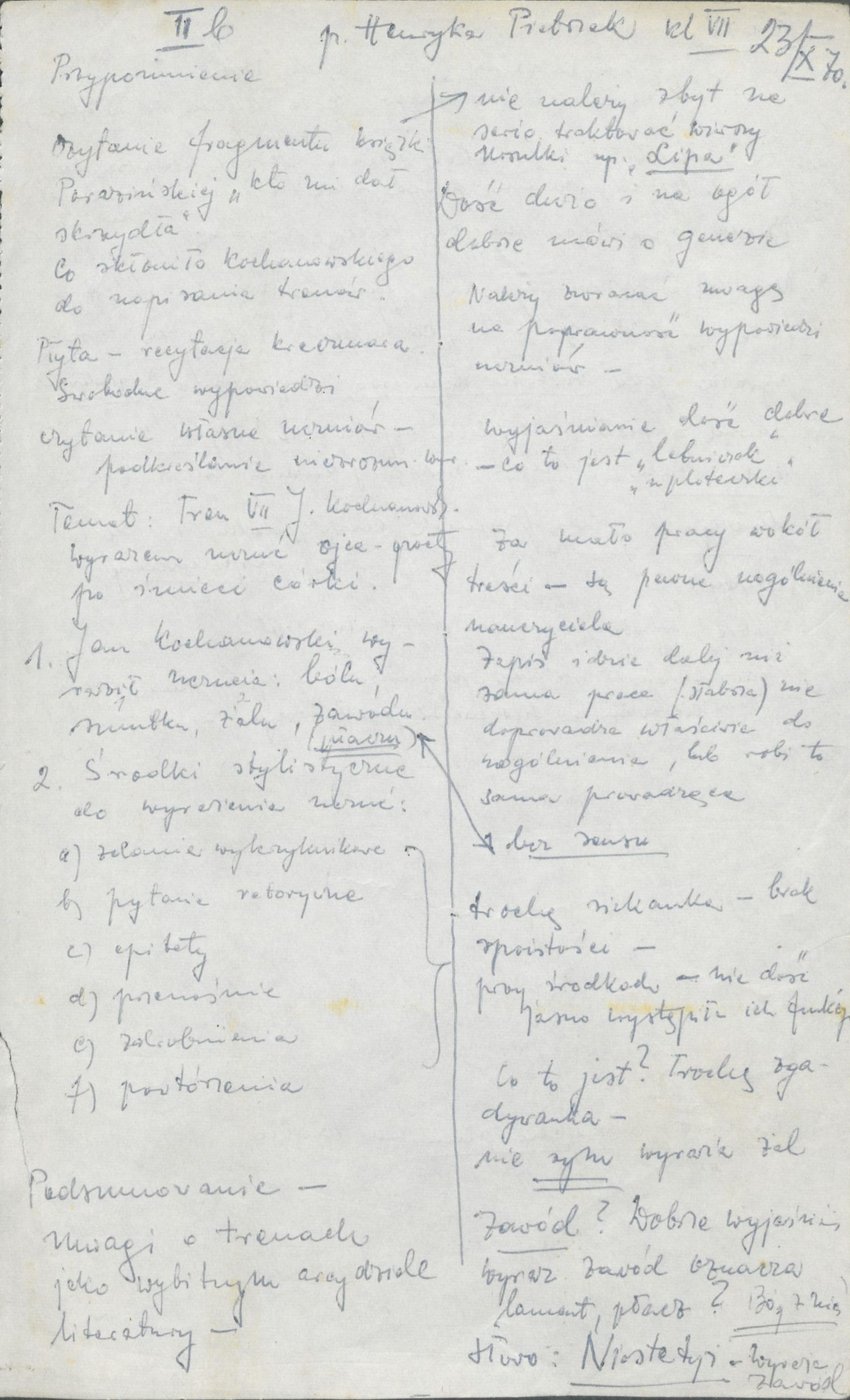 II b p. Henryka Piebrzak kl VII 23/X 70.
Przypomnienie
czytanie fragmentu książki
Porazińskiej „kto mi dał
skrzydła".
Co skłoniło Kochanowskiego
do napisania trenów.
Płyta – recytacja Kreczmara.
Swobodne wypowiedzi
czytanie własne uczniów –
podkreślanie niezrozum. wyr.
Temat: Tren VII J. Kochanowsk.
wyrazem uczuć ojca – poety
po śmierci córki.
1. Jan Kochanowski wy-
raził uczucia: bólu,
smutku, żalu, zawodu
2. Środki stylistyczne
do wyrażenia uczuć:
a) zdania wykrzyknikowe
b) pytanie retoryczne
c) epitety
d) przenośnie
e) zdrobnienia
f) powtórzenia
Podsumowanie –
Uwagi o trenach
jako wybitnym arcydziele
literatury –
nie należy zbyt na
serio traktować wierszy
Urszulki np. „Lipa"
Dość dużo i na ogół
dobrze mówi o genezie
Należy zwracać uwagę
na poprawność wypowiedzi
uczniów –
wyjaśnianie dość dobre
– co to jest „letniczek"
„uploteczki"
Za mało pracy wokół
treści – są pewne uogólnienia
nauczyciela
Zapis idzie dalej niż
sama praca (słabsza) nie
doprowadza właściwie do
uogólnienia, lub robi to
sama prowadząca
bez sensu
trochę siekanka – brak
spoistości –
przy środkach – nie dość
jasno wystąpiła ich funkcja
Co to jest? Trochę zga-
dywanka –
nie rytm wyraża żal
Zawód? Dobrze wyjaśnić
wyraz zawód oznacza
lament, płacz? Bój z nią
słowo: Niestetyż – wyraża
zawód